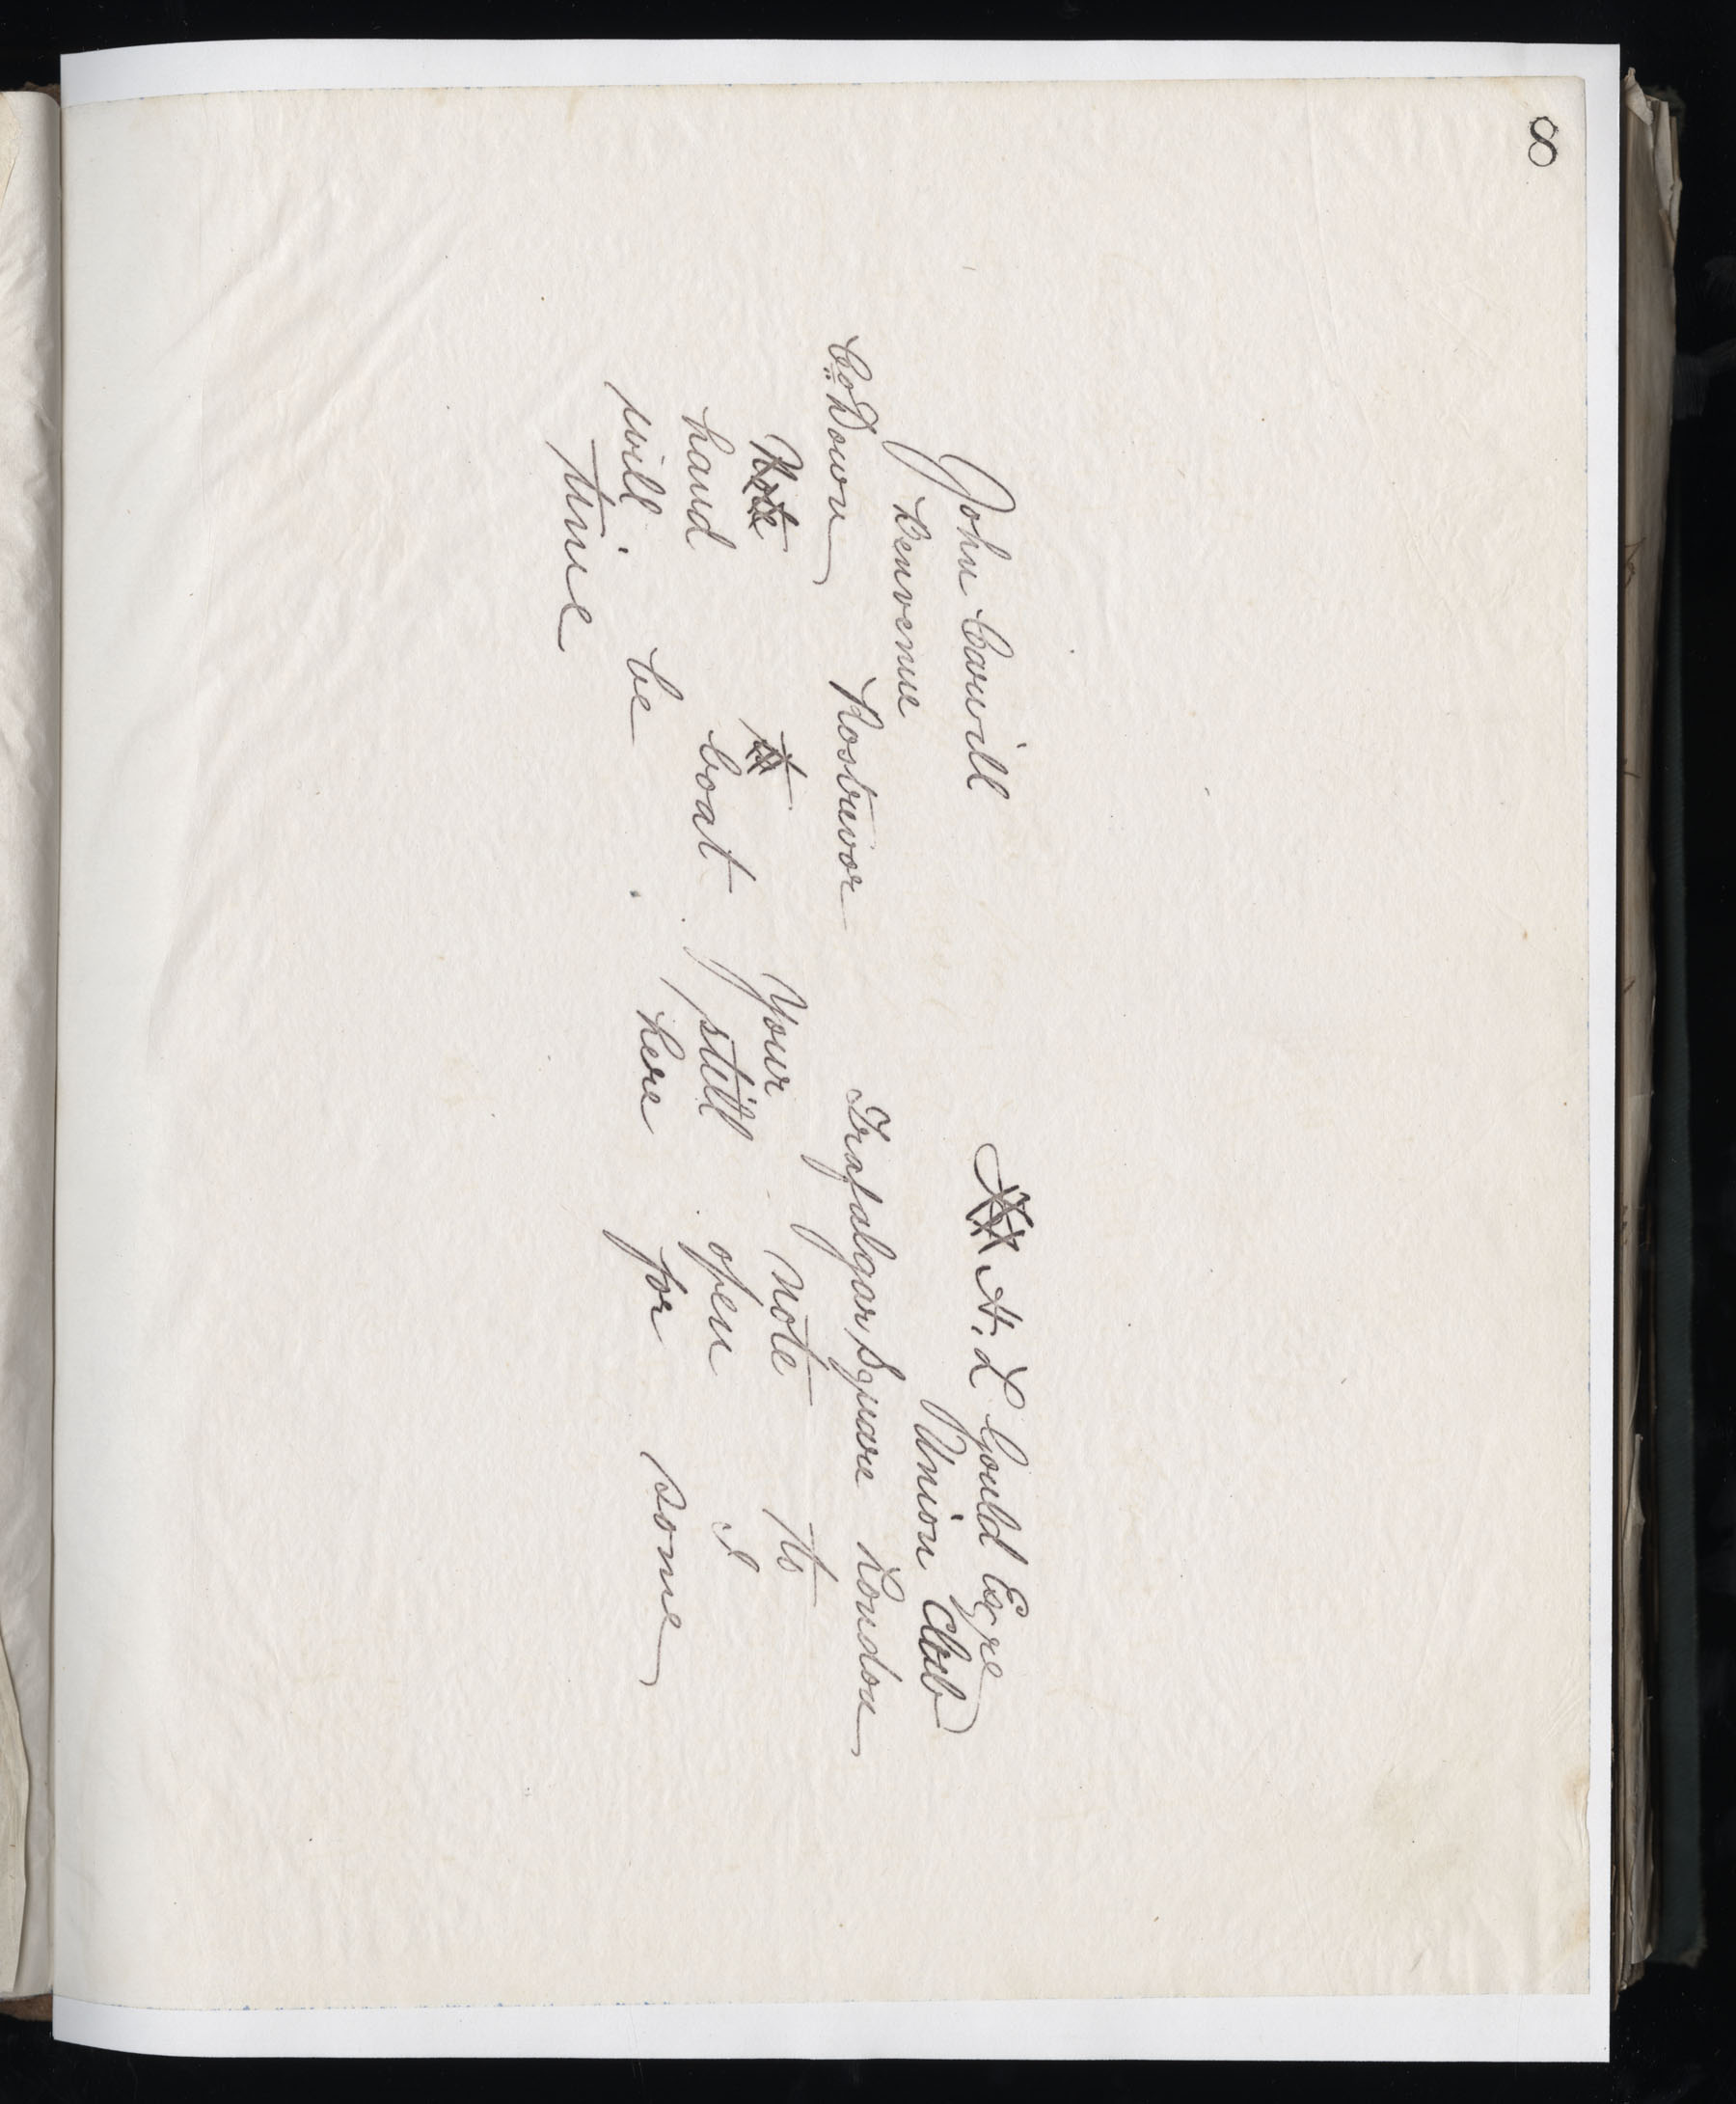 8
John Carvill A. L Gould Esqre
Benvenue Union Club
Co Down Rostrevor Trafalgar, Square London
Note Your note to
hand boat still open I
will be here for some
time